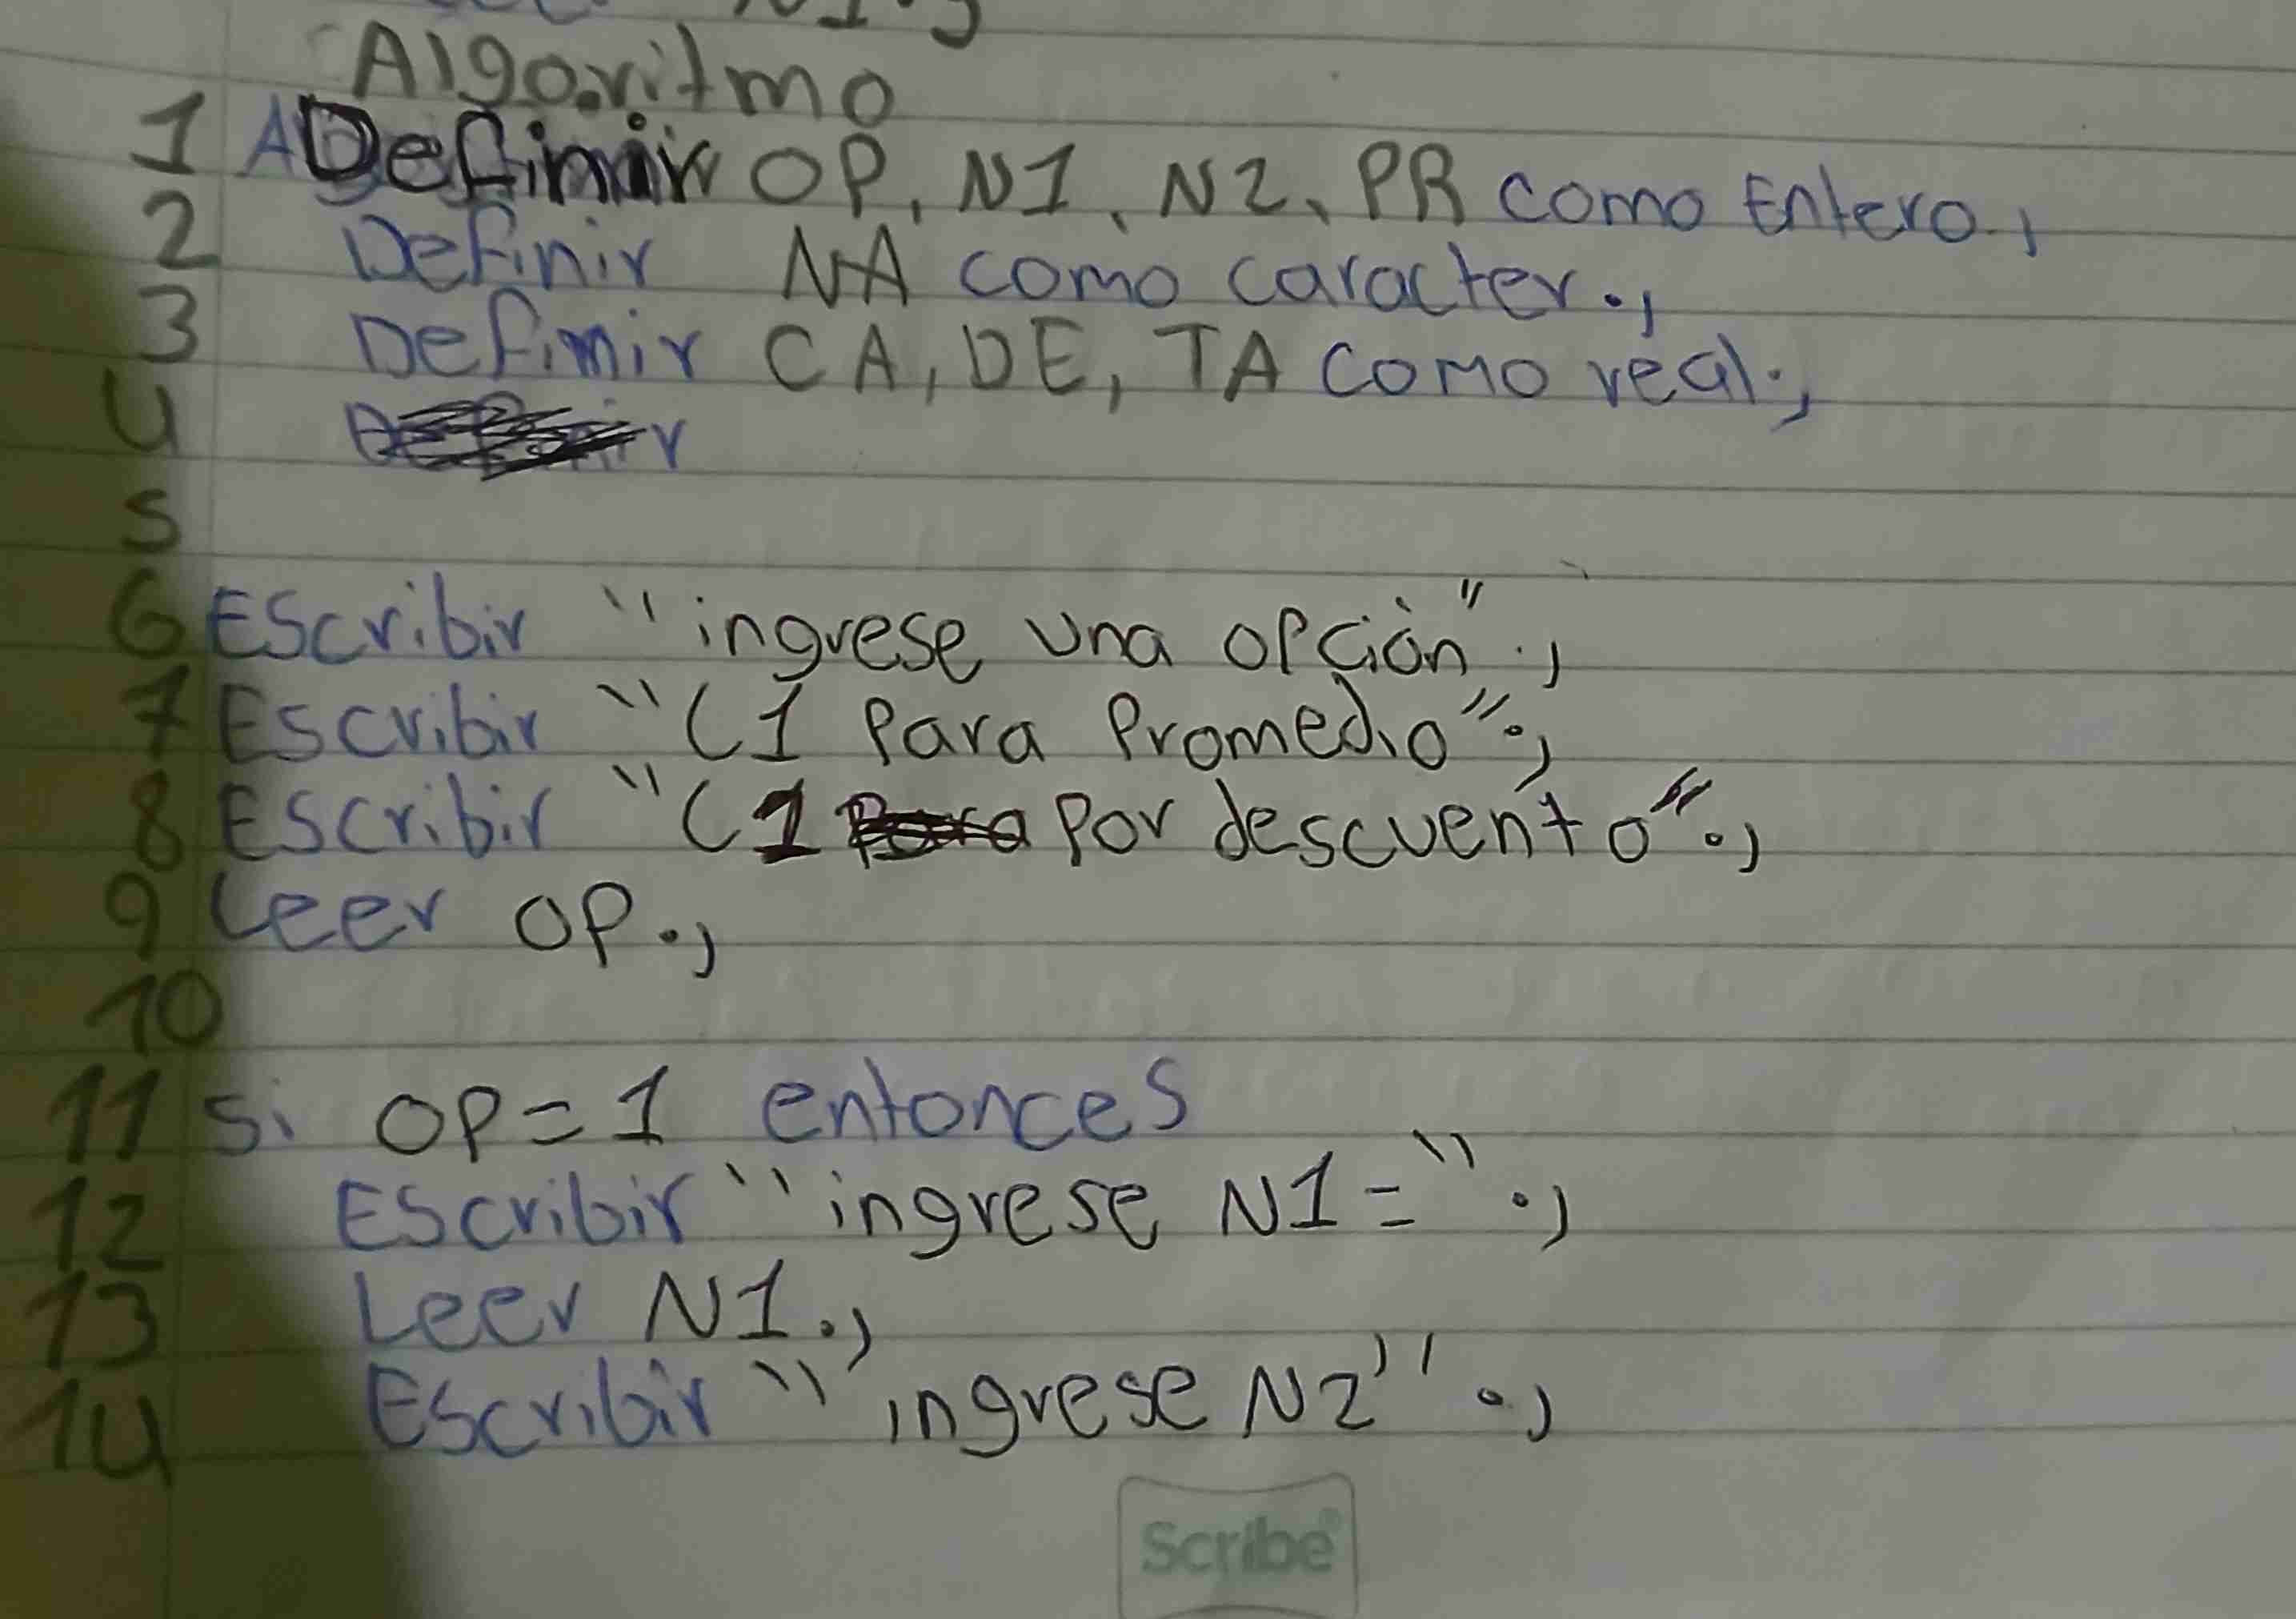 N1;
Algoritmo
1 Definir OP, N1, N2, PR como Entero;
2 Definir NA como caracter;
3 Definir CA, DE, TA como real;
4
5
6 Escribir "ingrese una opción";
7 Escribir "(1 Para Promedio";
8 Escribir "(1 Por descuento";
9 Leer OP;
10
11 si OP=1 entonces
12 Escribir "ingrese N1=";
13 Leer N1;
14 Escribir "ingrese N2";
Scribe®